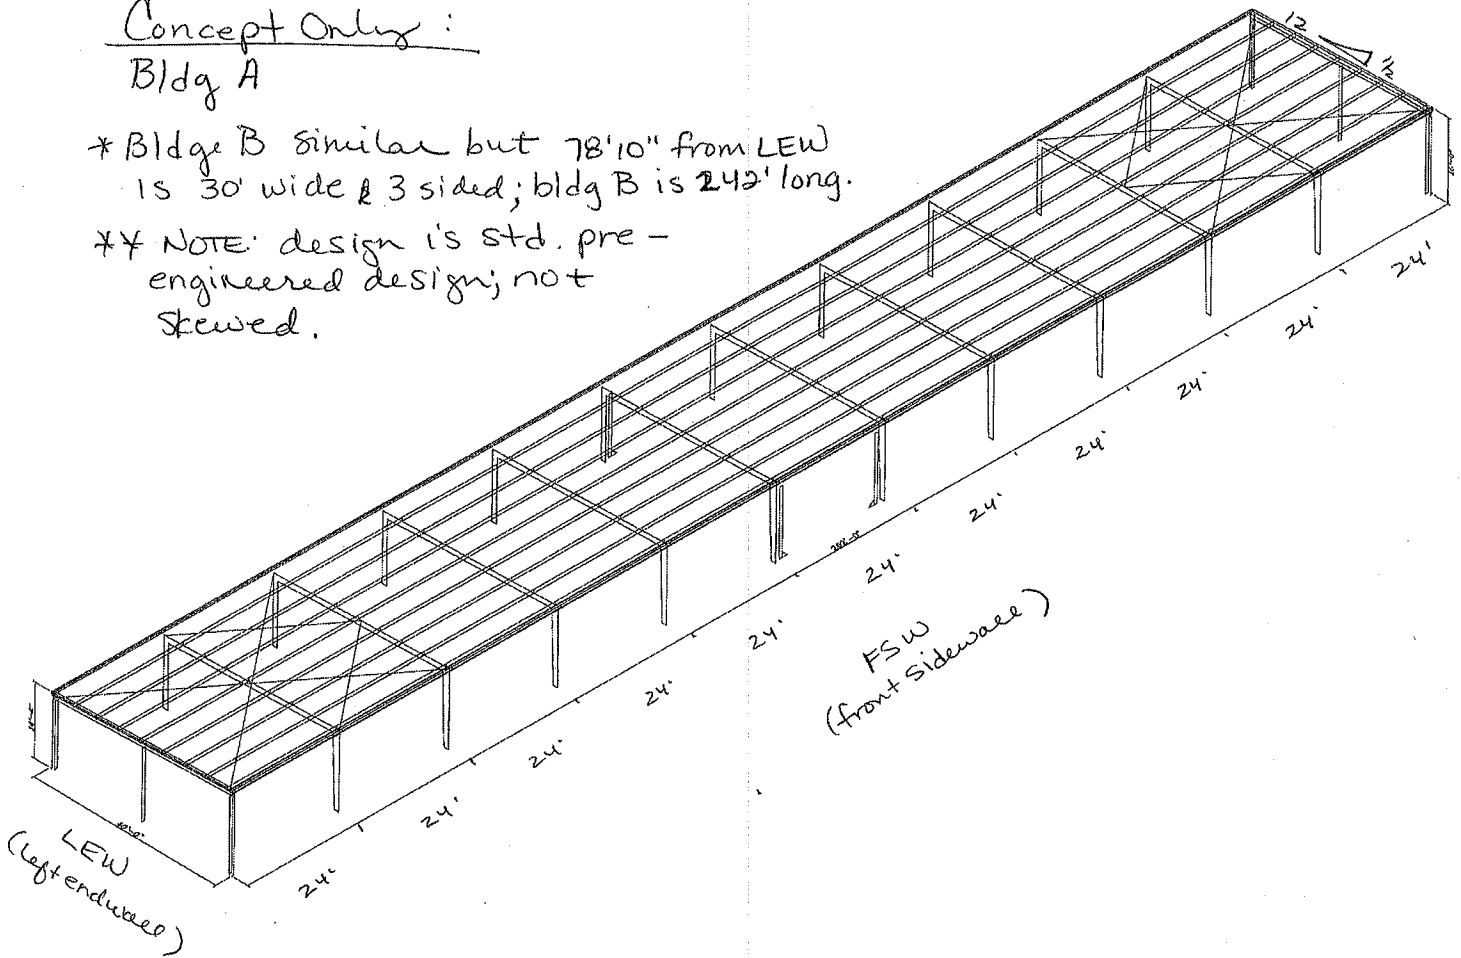 Concept Only :
Bldg A
* Bldge B similar but 78'10" from LEW
is 30' wide & 3 sided; bldg B is 242' long.
** NOTE: design is std. pre-
engineered design; not
skewed.
12
1/2
24'
24'
24'
24'
24'
24'
24'
24'
24'
24'
24'
FSW
(front sidewall)
LEW
(left endwall)